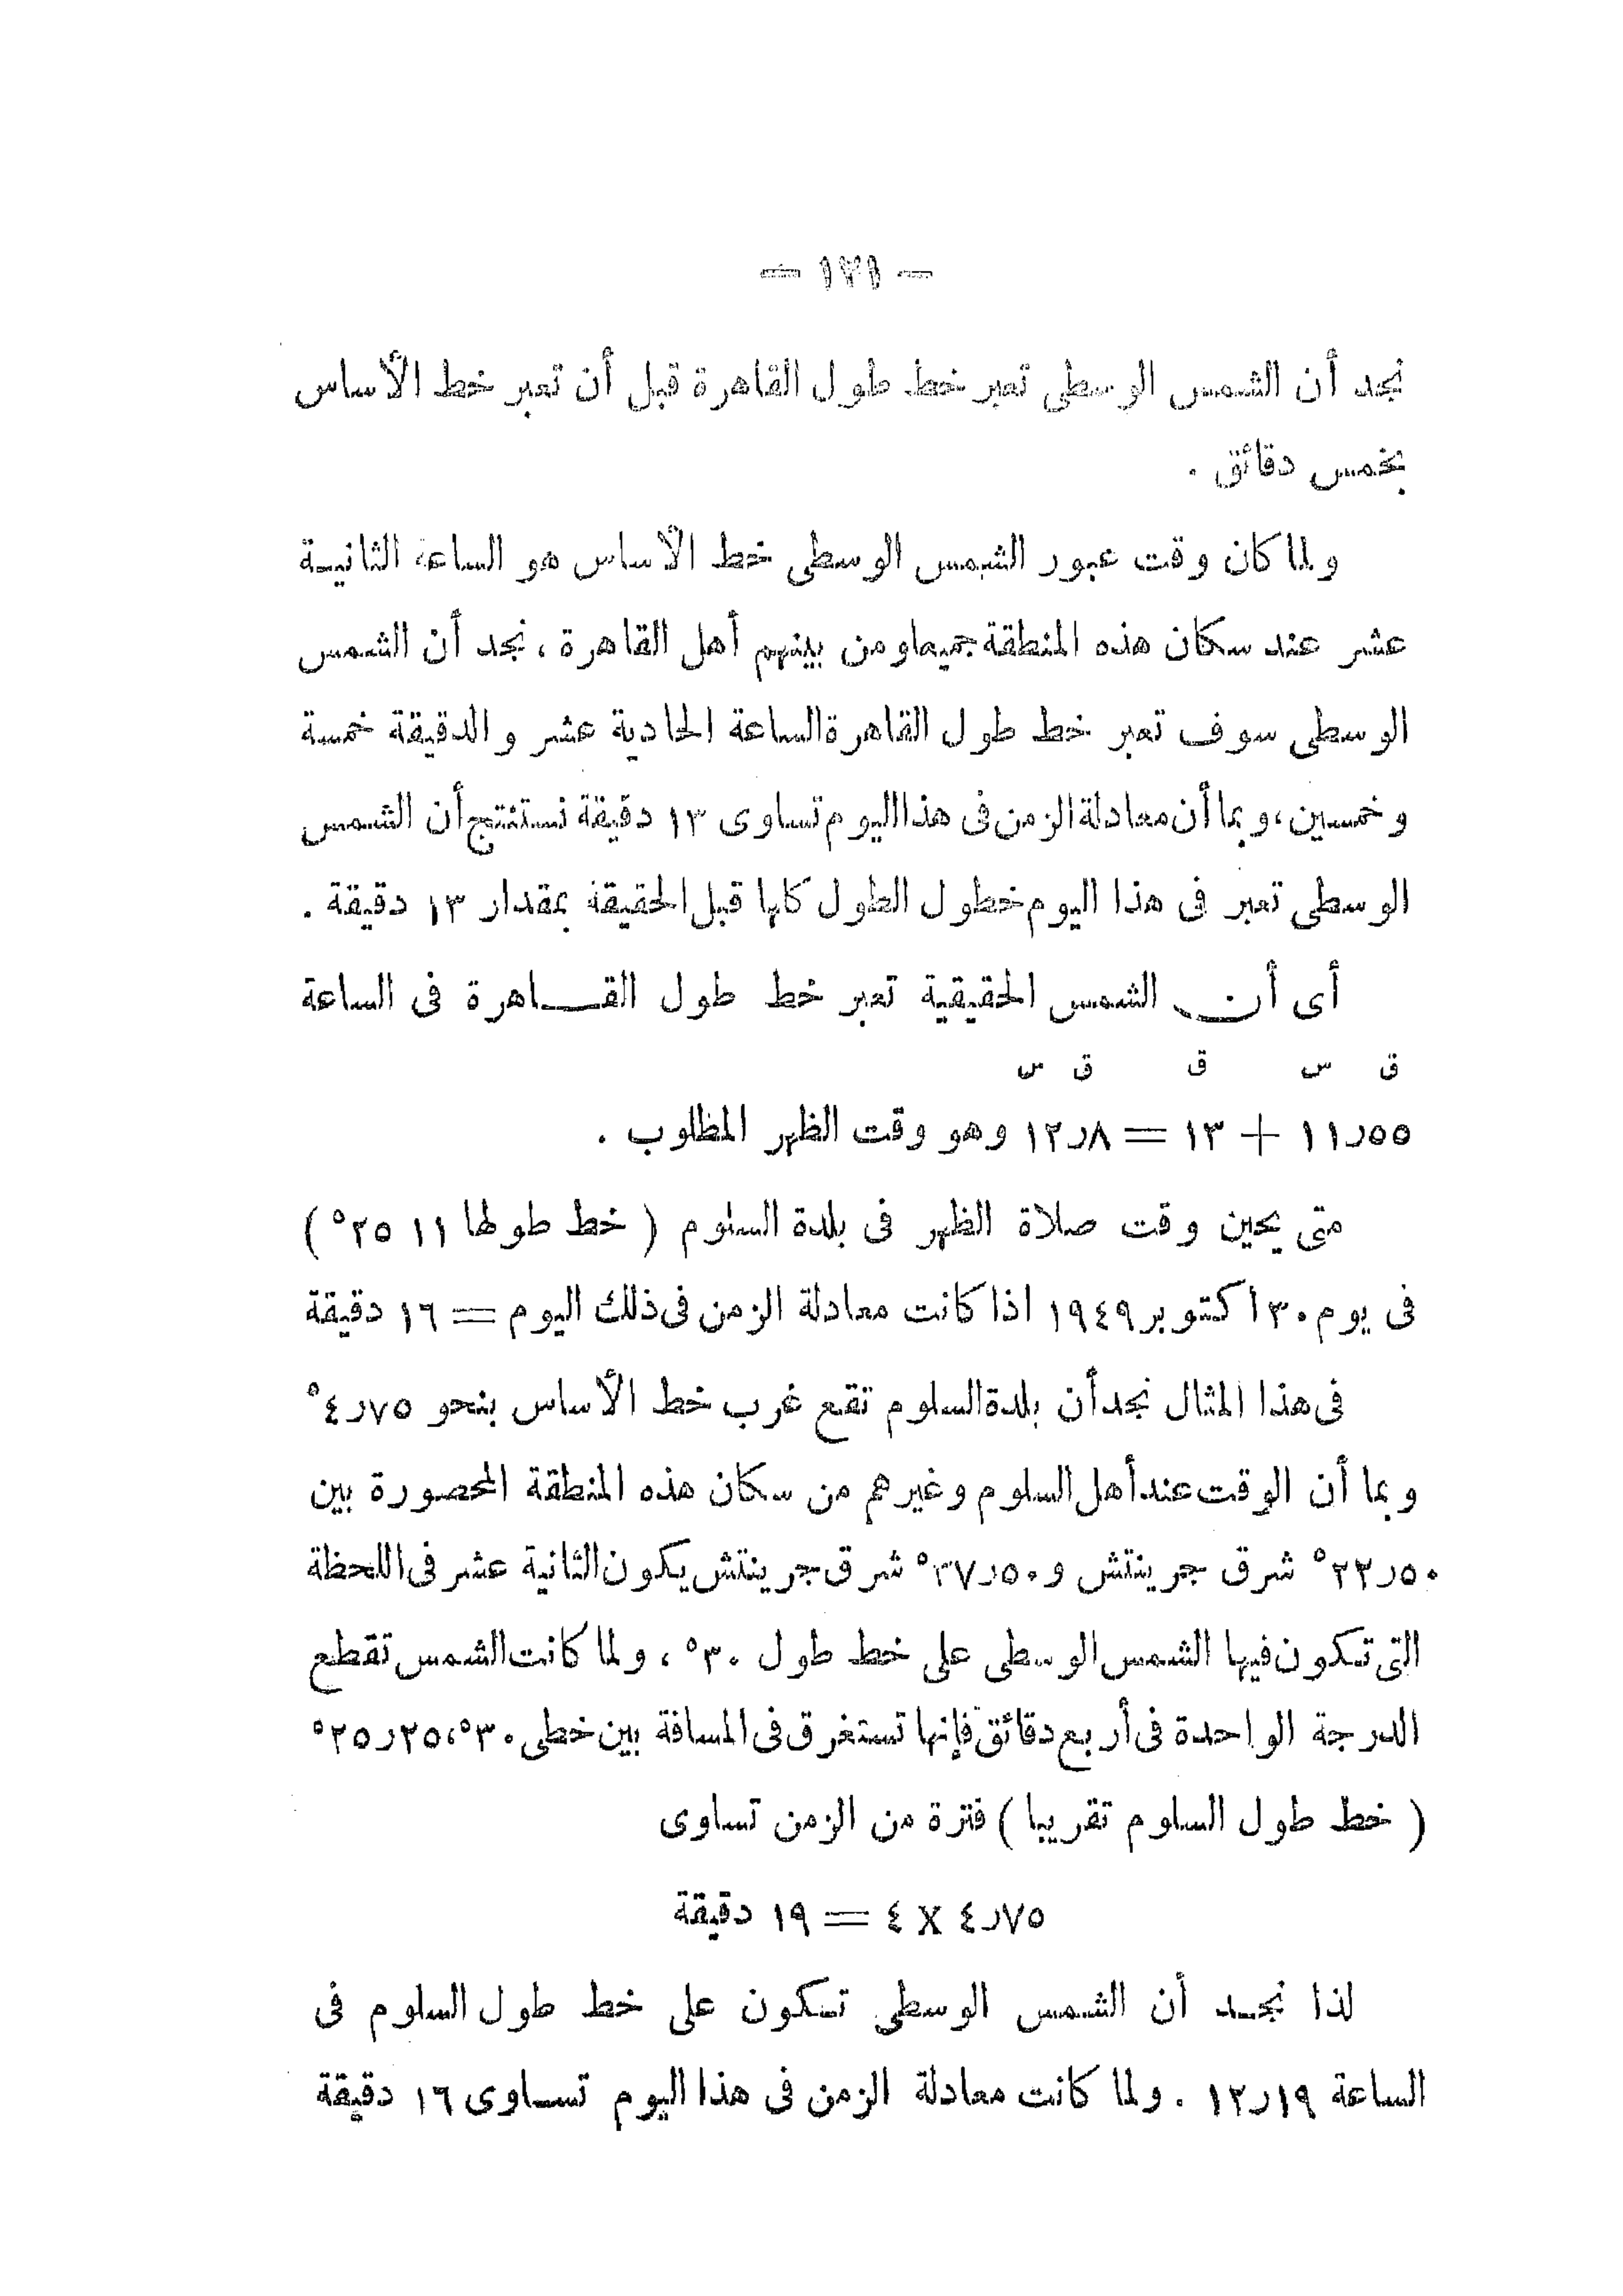 — ١٢١ —
نجد أن الشمس الوسطى تعبر خط طول القاهرة قبل أن تعبر خط الأساس
بخمس دقائق .
ولما كان وقت عبور الشمس الوسطى خط الأساس هو الساعة الثانيـة
عشر عند سكان هذه المنطقة جميعا ومن بينهم أهل القاهرة ، نجد أن الشمس
الوسطى سوف تعبر خط طول القاهرة الساعة الحادية عشر والدقيقة خمسة
وخمسين، وبما أن معادلة الزمن فى هذا اليوم تساوى ١٣ دقيقة نستنتج أن الشمس
الوسطى تعبر فى هذا اليوم خطول الطول كلها قبل الحقيقة بمقدار ١٣ دقيقة .
أى أن الشمس الحقيقية تعبر خط طول القـاهرة فى الساعة
ق س ق ق س
٥٥ر١١ + ١٣ = ٨ر١٢ وهو وقت الظهر المطلوب .
متى يحين وقت صلاة الظهر فى بلدة السلوم ( خط طولها ١١ ٢٥° )
فى يوم ٣٠ اكتوبر ١٩٤٩ اذا كانت معادلة الزمن فى ذلك اليوم = ١٦ دقيقة
فى هذا المثال نجد أن بلدة السلوم تقع غرب خط الأساس بنحو ٧٥ر٤°
وبما أن الوقت عند أهل السلوم وغيرهم من سكان هذه المنطقة المحصورة بين
٥٠ر٢٢° شرق جرينتش و ٥٠ر٣٧° شرق جرينتش يكون الثانية عشر فى اللحظة
التى تكون فيها الشمس الوسطى على خط طول ٣٠° ، ولما كانت الشمس تقطع
الدرجة الواحدة فى أربع دقائق فإنها تستغرق فى المسافة بين خطى ٣٠°، ٢٥ر٢٥°
( خط طول السلوم تقريبا ) فترة من الزمن تساوى
٧٥ر٤ X ٤ = ١٩ دقيقة
لذا نجـد أن الشمس الوسطى تكون على خط طول السلوم فى
الساعة ١٩ر١٢ . ولما كانت معادلة الزمن فى هذا اليوم تسـاوى ١٦ دقيقة